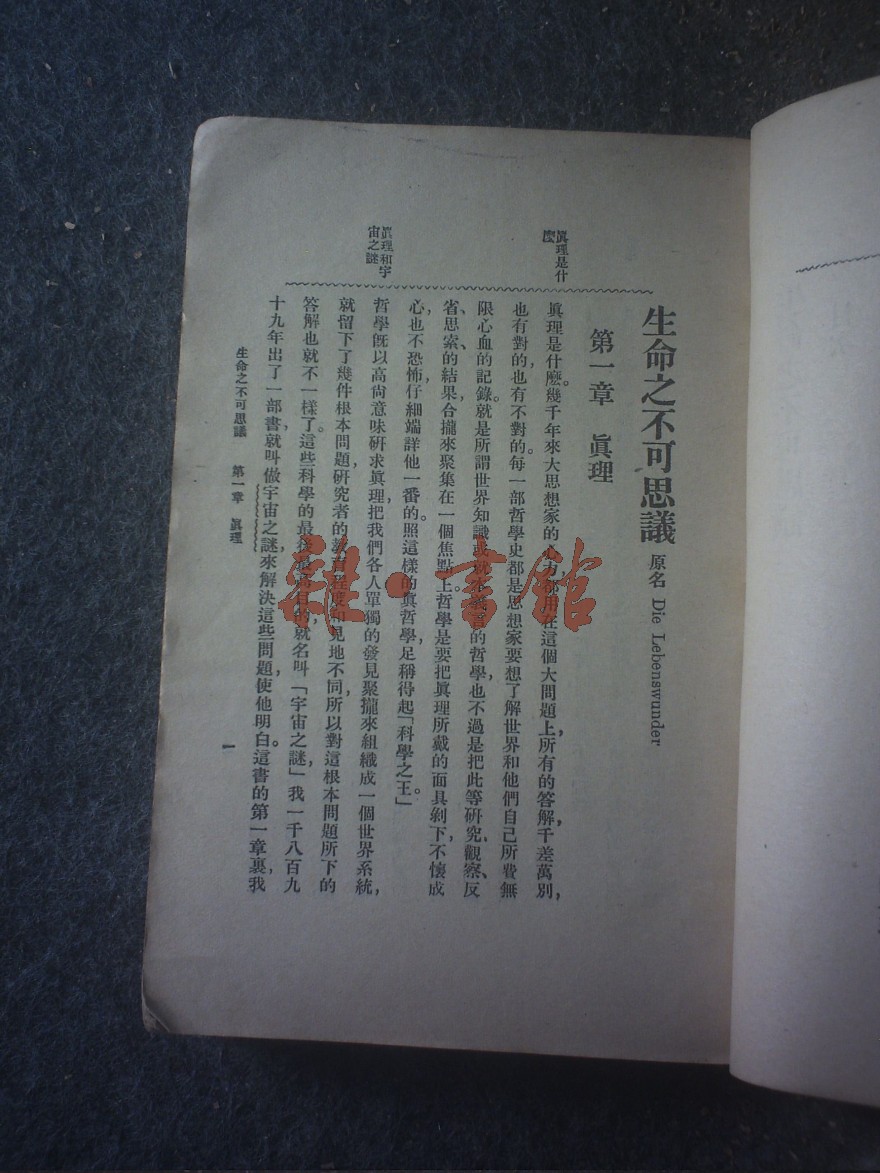 生命之不可思議 原名 Die Lebenswunder
第一章 眞理
眞理是什
麼
眞理是什麽。幾千年來大思想家的心力都用在這個大問題上，所有的答解千差萬別，
也有對的也有不對的。每一部哲學史都是思想家要想了解世界和他們自己所費無
限心血的記錄。就是所謂世界知識或就本義言的哲學也不過是把此等研究、觀察、反
省、思索的結果，合攏來聚集在一個焦點上。哲學是要把眞理所戴的面具剝下，不懷成
心，也不恐怖，仔細端詳他一番的。照這樣的眞哲學足稱得起「科學之王。」
眞理和宇
宙之謎
哲學旣以高尙意味研求眞理，把我們各人單獨的發見聚攏來組織成一個世界系統，
就留下了幾件根本問題，研究者的教育程度和見地不同，所以對這根本問題所下的
答解也就不一樣了。這些科學的最後最高目的，就名叫「宇宙之謎，」我一千八百九
十九年出了一部書，就叫做宇宙之謎，來解決這些問題，使他明白。這書的第一章裏，我
生命之不可思議 第一章 眞理
一
雜·書館